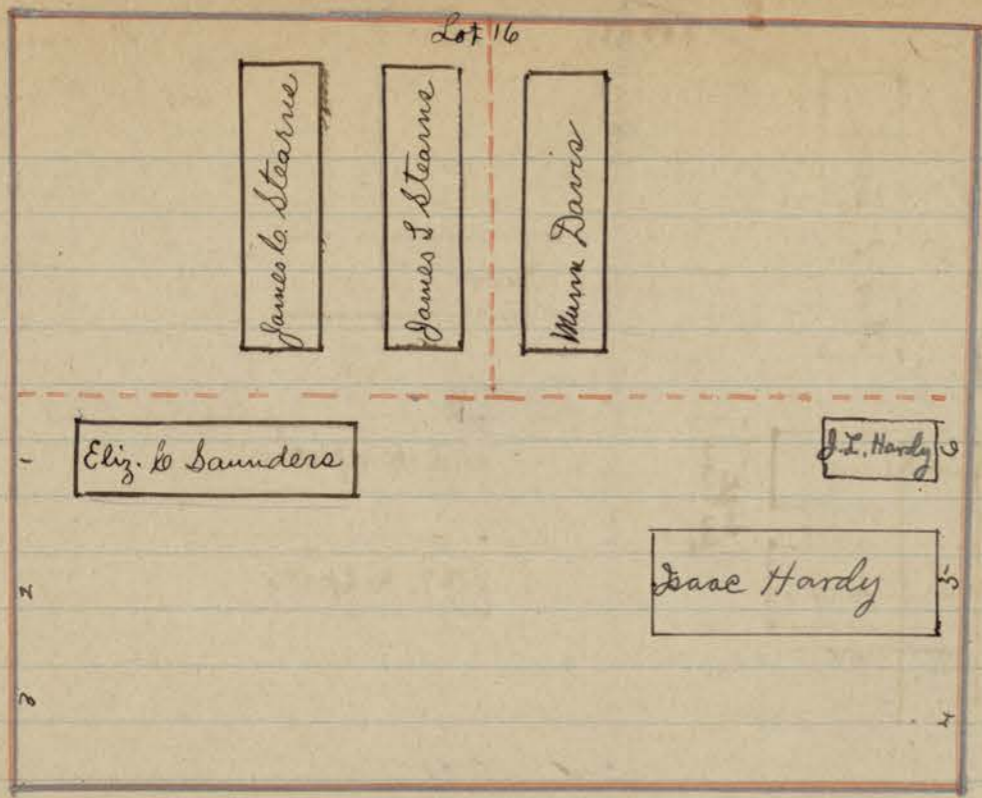 Lot 16
James C. Stearns
James L Stearns
Davis
1
Eliz. C Saunders
J. L. Hardy
6
2
Isaac Hardy
5
3
4